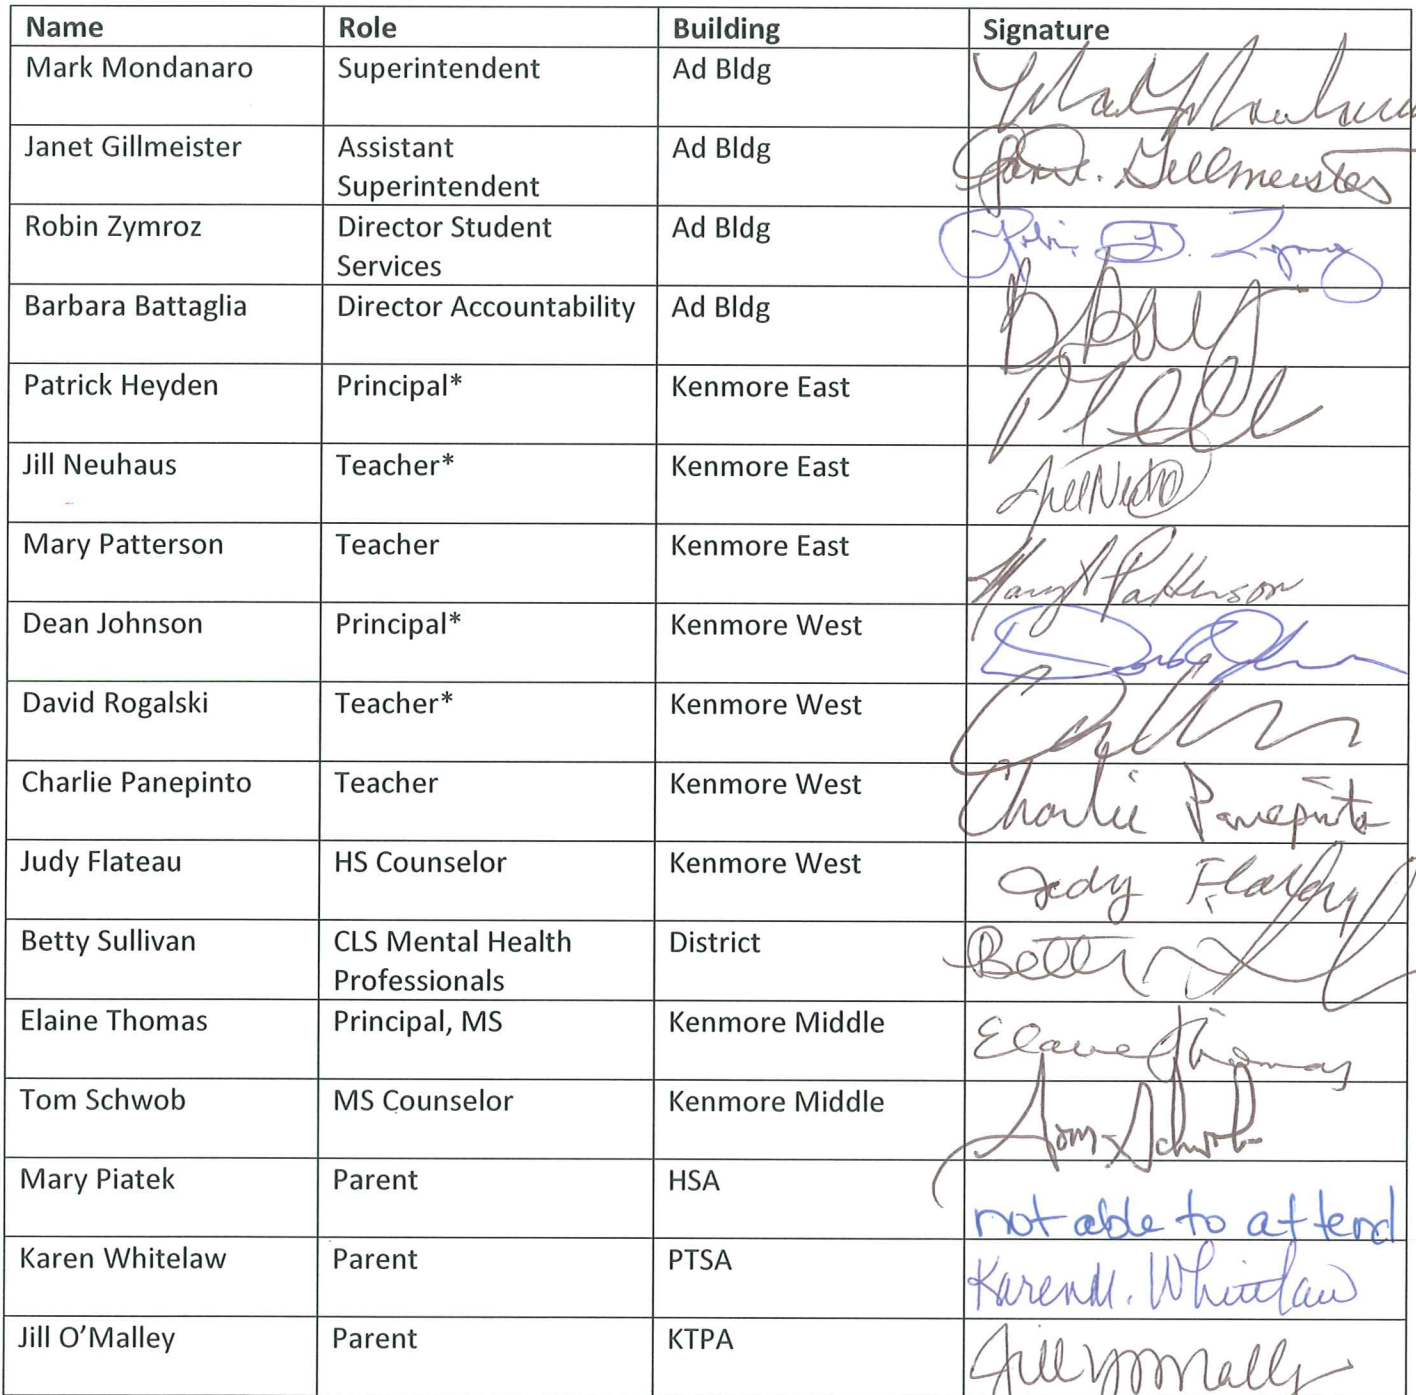 Name Role Building Signature
Mark Mondanaro Superintendent Ad Bldg
Janet Gillmeister Assistant Ad Bldg Jan E. Gillmeister
Superintendent
Robin Zymroz Director Student Ad Bldg Robin D. Zymroz
Services
Barbara Battaglia Director Accountability Ad Bldg
Patrick Heyden Principal* Kenmore East
Jill Neuhaus Teacher* Kenmore East
Mary Patterson Teacher Kenmore East Mary A Patterson
Dean Johnson Principal* Kenmore West
David Rogalski Teacher* Kenmore West
Charlie Panepinto Teacher Kenmore West Charlie Panepinto
Judy Flateau HS Counselor Kenmore West Judy
Betty Sullivan CLS Mental Health District Betty
Professionals
Elaine Thomas Principal, MS Kenmore Middle Elaine Thomas
Tom Schwob MS Counselor Kenmore Middle Tom Schwob
Mary Piatek Parent HSA not able to attend
Karen Whitelaw Parent PTSA Karen M. Whitelaw
Jill O’Malley Parent KTPA Jill O'Malley